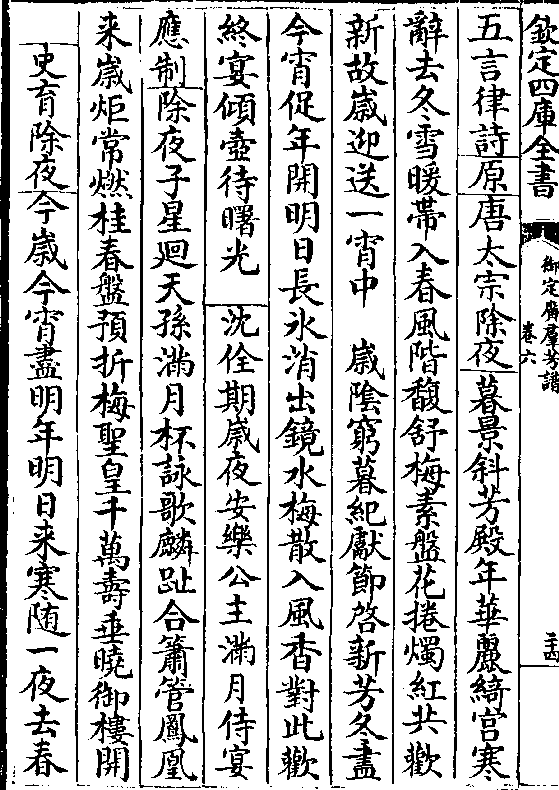 欽定四庫全書
御定廣羣芳譜
卷六
二十四
五言律詩原唐太宗除夜暮景斜芳殿年華麗綺宫寒
辭去冬雪暖帶入春風階馥舒梅素盤花捲燭紅共歡
新故歲迎送一宵中　歲陰窮暮紀獻節啓新芳冬盡
今宵促年開明日長氷消出鏡水梅散入風香對此歡
終宴傾壺待曙光　沈佺期歲夜安樂公主滿月侍宴
應制除夜子星迴天孫滿月杯詠歌麟趾合簫管鳳凰
来歲炬常燃桂春盤預折梅聖皇千萬壽垂曉御樓開
史育除夜今歲今宵盡明年明日来寒随一夜去春